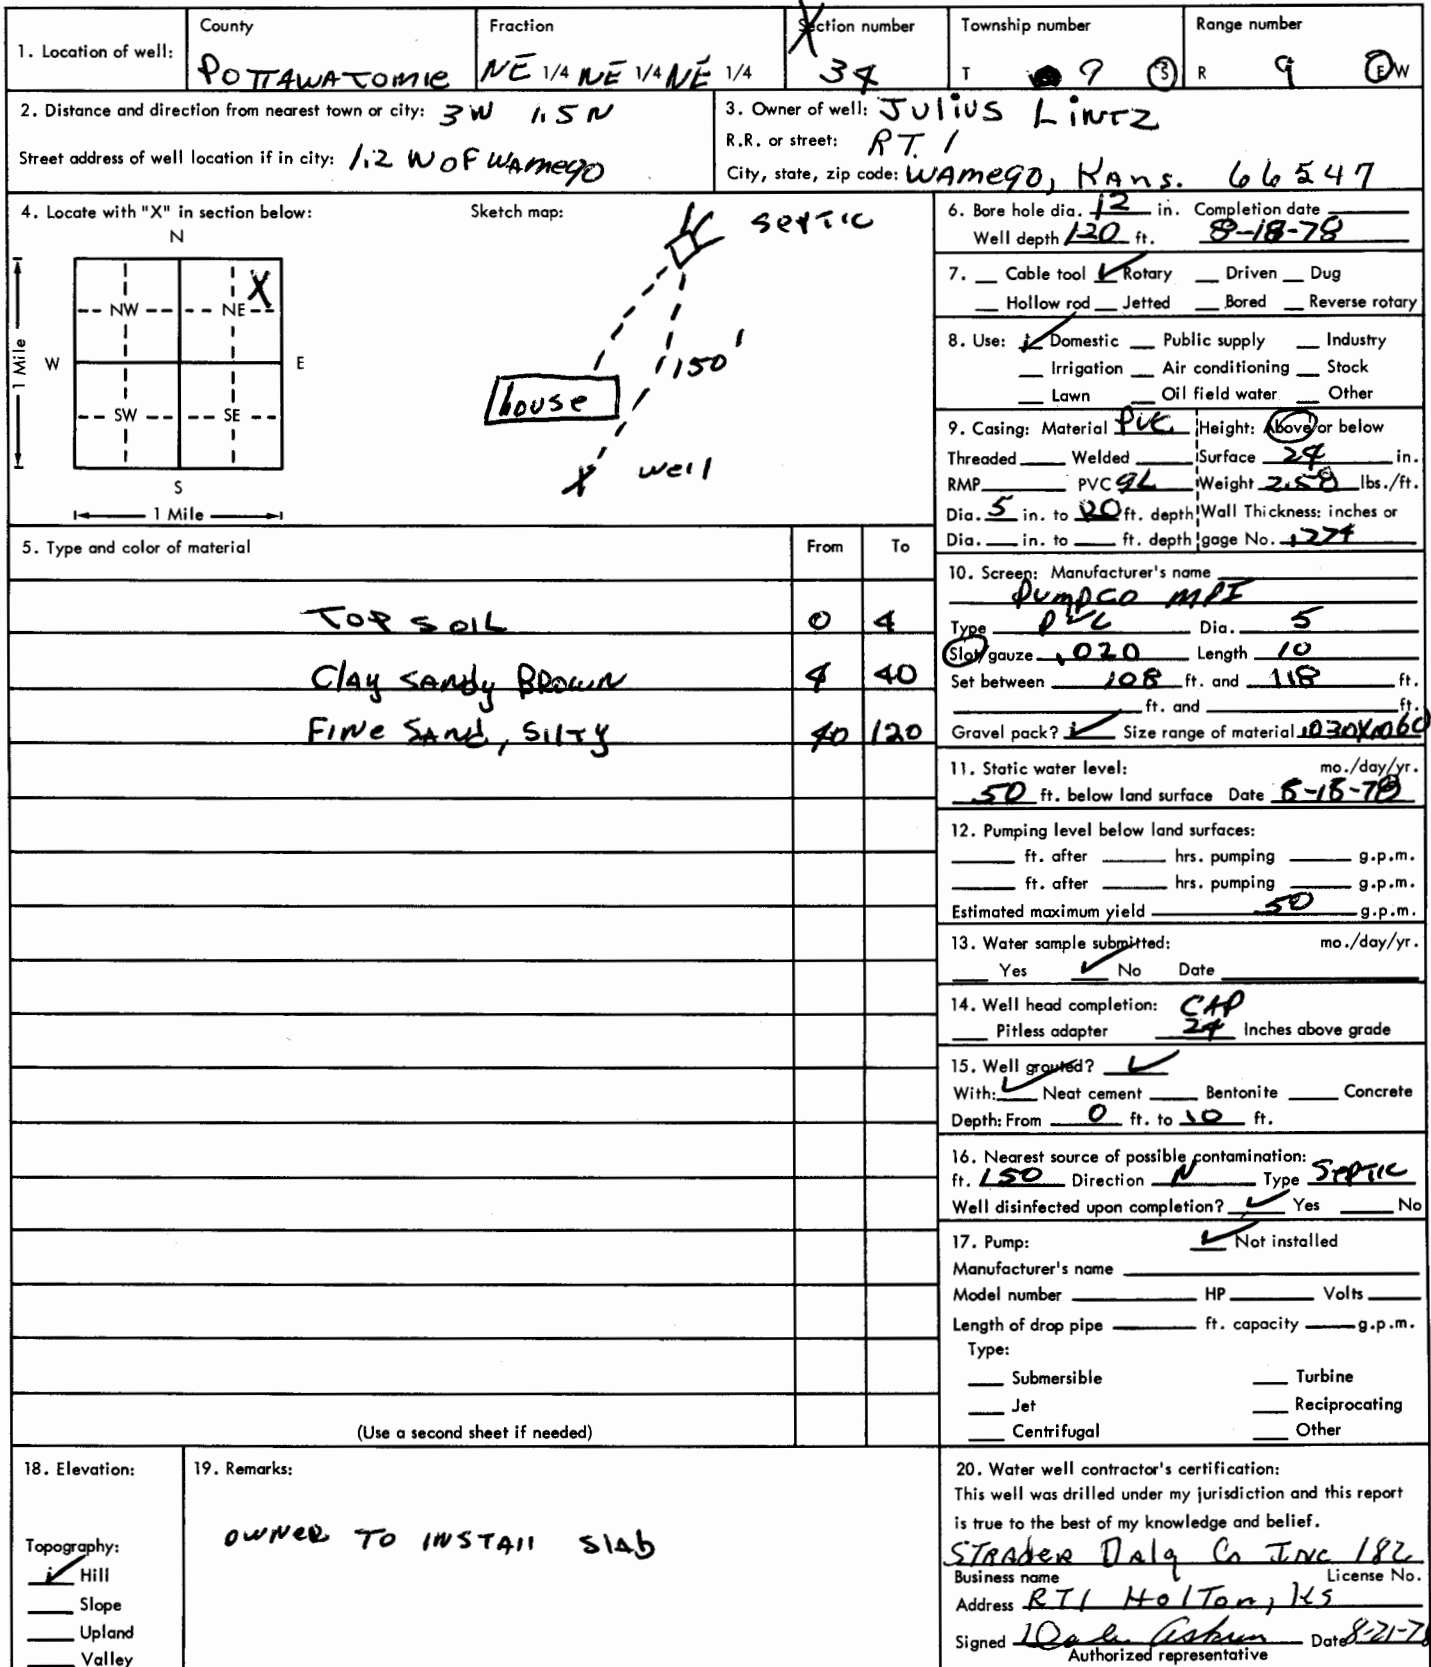 County Fraction Section number Township number Range number
1. Location of well: POTTAWATOMIE NE 1/4 NE 1/4 NE 1/4 34 T 9 S R 9 E W
2. Distance and direction from nearest town or city: 3W 1.5N
Street address of well location if in city: 1.2 W OF WAMEGO
3. Owner of well: JULIUS LINTZ
R.R. or street: RT. 1
City, state, zip code: WAMEGO, KANS. 66547
4. Locate with "X" in section below:
N
NW NE X
W E
SW SE
S
1 Mile
1 Mile
Sketch map:
SEPTIC
150'
house
X well
5. Type and color of material From To
TOP SOIL 0 4
CLAY SANDY BROWN 4 40
FINE SAND, SILTY 40 120
(Use a second sheet if needed)
6. Bore hole dia. 12 in. Completion date
Well depth 120 ft. 8-18-78
7. Cable tool ✓ Rotary Driven Dug
Hollow rod Jetted Bored Reverse rotary
8. Use: ✓ Domestic Public supply Industry
Irrigation Air conditioning Stock
Lawn Oil field water Other
9. Casing: Material PVC Height: Above or below
Threaded Welded Surface 24 in.
RMP PVC GL Weight 2.58 lbs./ft.
Dia. 5 in. to ft. depth Wall Thickness: inches or
Dia. in. to ft. depth gage No.
10. Screen: Manufacturer's name
PUMPCO MPI
Type PVC Dia. 5
Slot/gauze .020 Length 10
Set between 108 ft. and 118 ft.
ft. and ft.
Gravel pack? ✓ Size range of material .030X.060
11. Static water level: mo./day/yr.
50 ft. below land surface Date 8-18-78
12. Pumping level below land surfaces:
ft. after hrs. pumping g.p.m.
ft. after hrs. pumping g.p.m.
Estimated maximum yield 50 g.p.m.
13. Water sample submitted: mo./day/yr.
Yes ✓ No Date
14. Well head completion: CAP
Pitless adapter 24 Inches above grade
15. Well grouted? ✓
With: ✓ Neat cement Bentonite Concrete
Depth: From 0 ft. to 10 ft.
16. Nearest source of possible contamination:
ft. 150 Direction N Type SEPTIC
Well disinfected upon completion? ✓ Yes No
17. Pump: ✓ Not installed
Manufacturer's name
Model number HP Volts
Length of drop pipe ft. capacity g.p.m.
Type:
Submersible Turbine
Jet Reciprocating
Centrifugal Other
18. Elevation:
Topography:
✓ Hill
Slope
Upland
Valley
19. Remarks:
OWNER TO INSTALL SLAB
20. Water well contractor's certification:
This well was drilled under my jurisdiction and this report
is true to the best of my knowledge and belief.
STRADER Dalg Co INC 182
Business name License No.
Address RT1 HOLTON, KS
Signed Date 8-21-78
Authorized representative